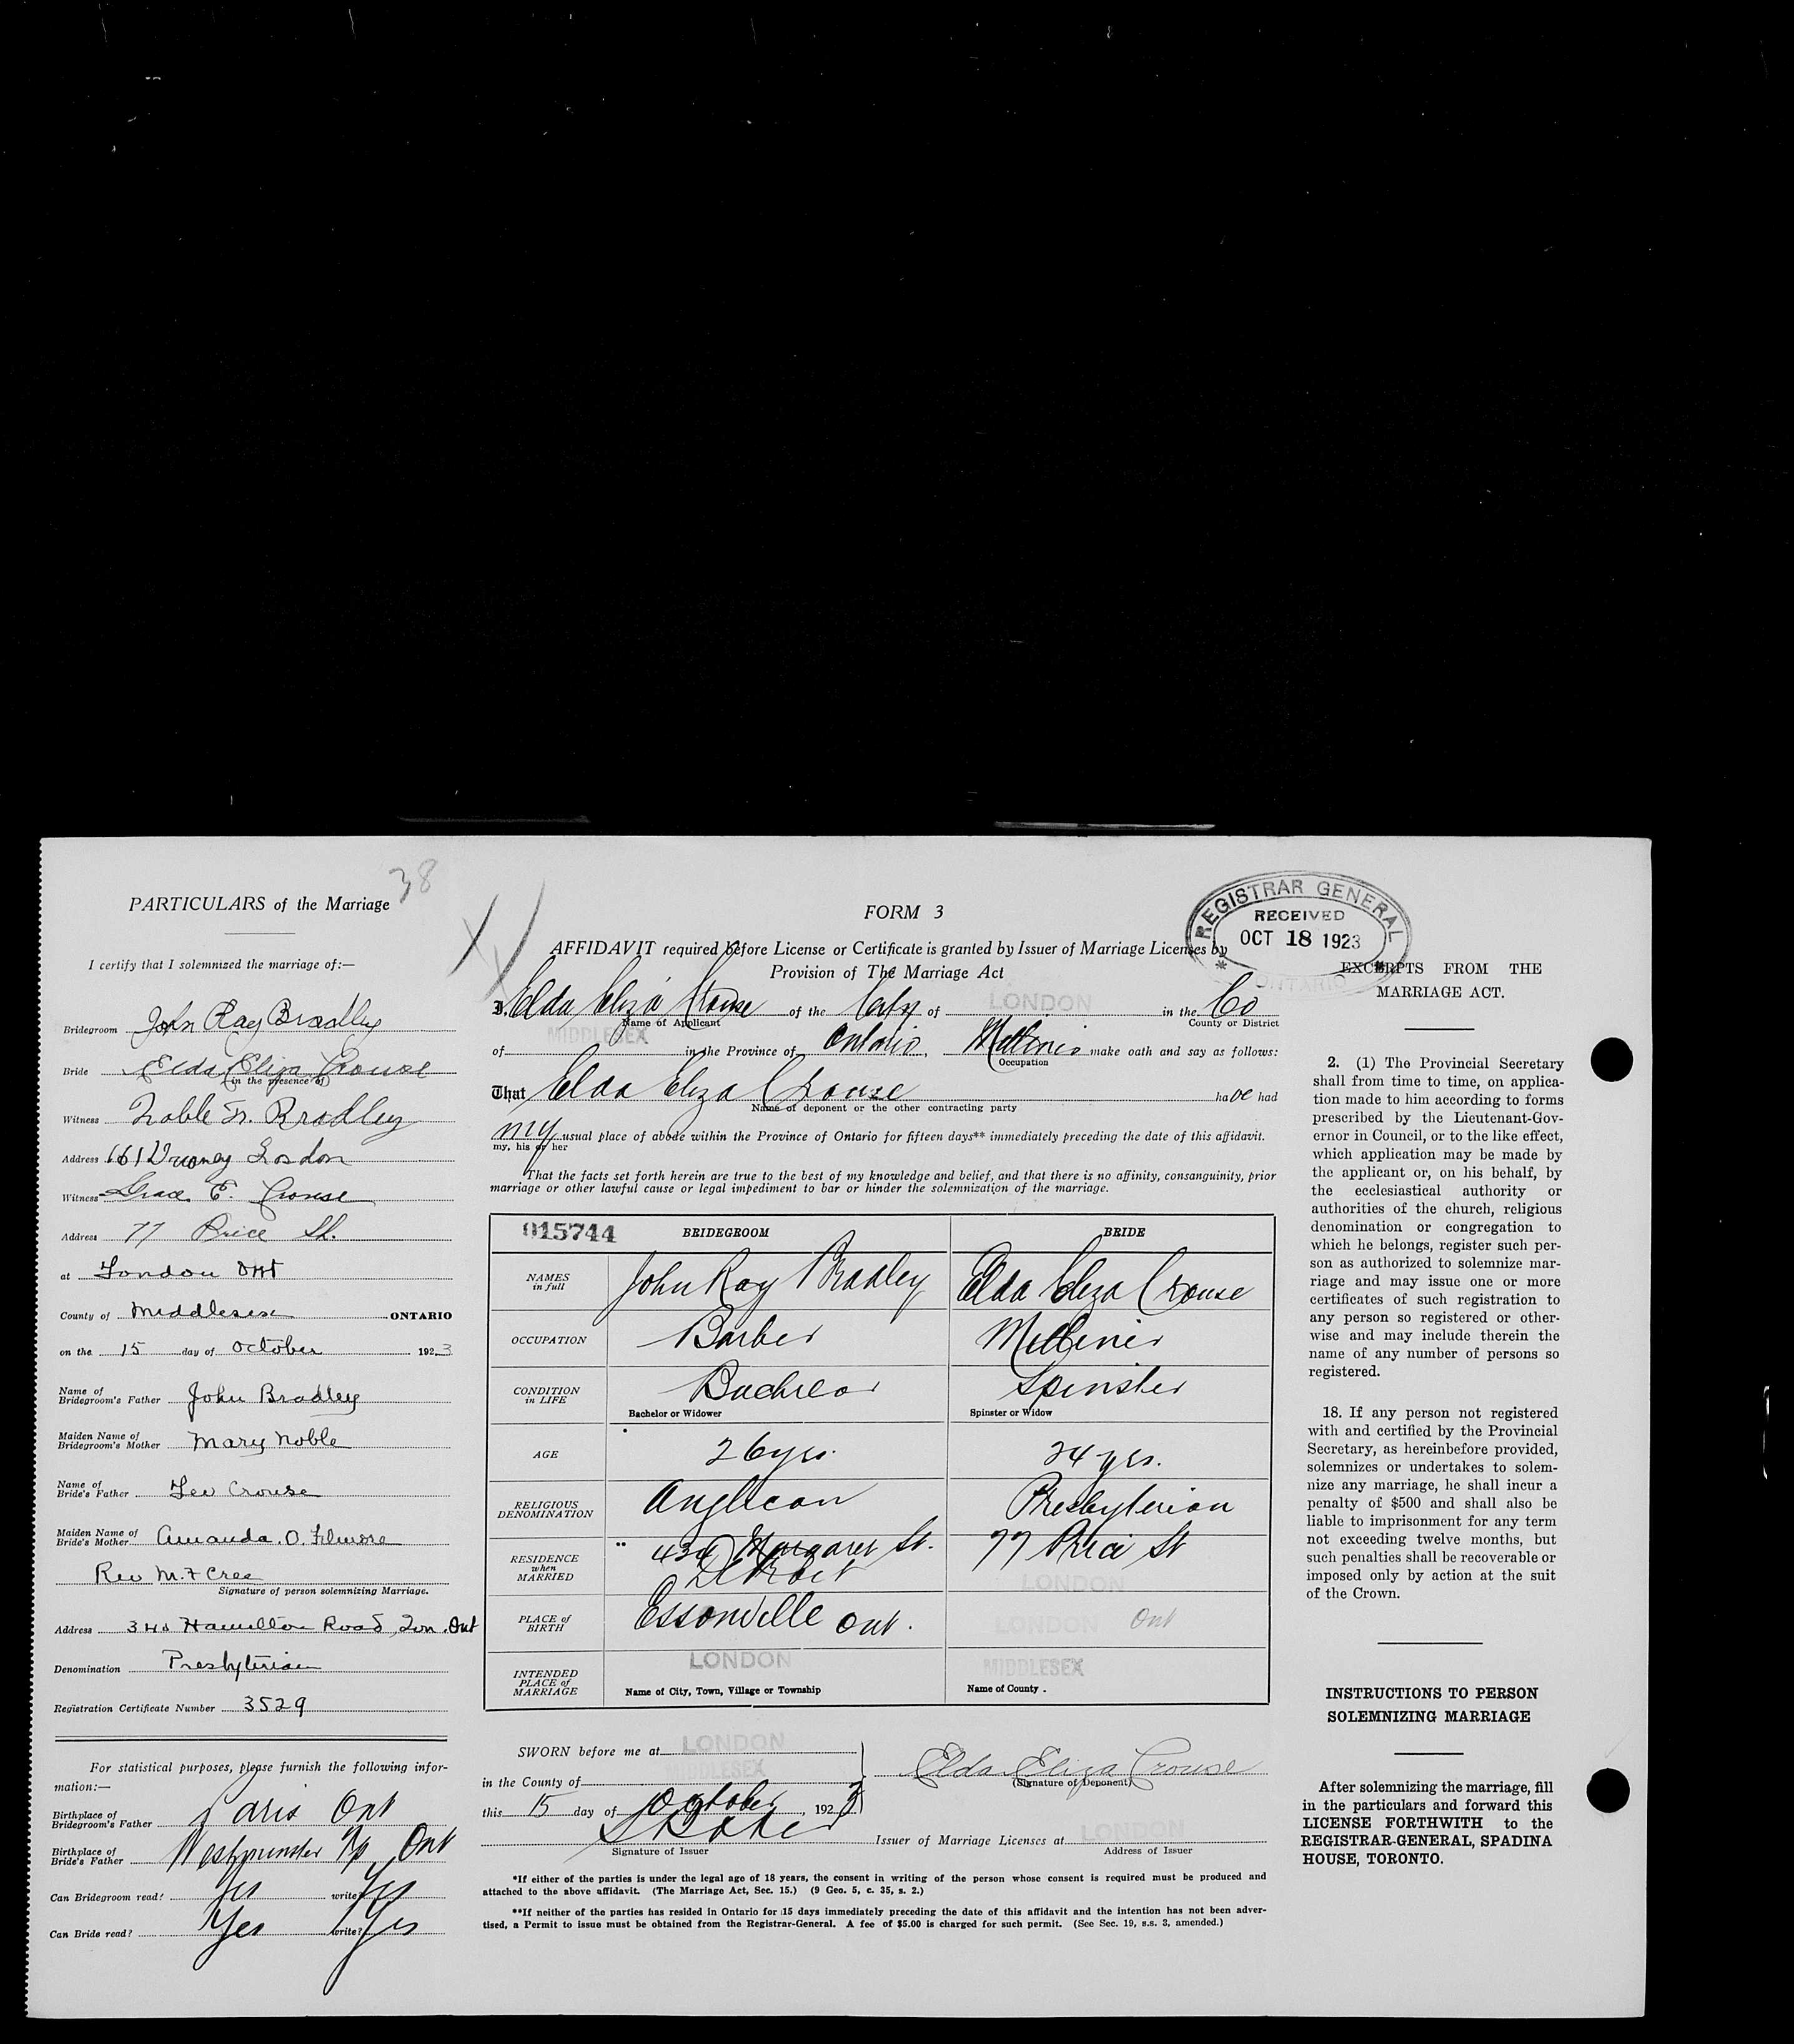 38
PARTICULARS of the Marriage
I certify that I solemnized the marriage of:—
Bridegroom John Ray Bradley
Bride Elda Eliza Crouse
(in the presence of)
Witness Noble Bradley
Address 661 London
Witness Grace E. Crouse
Address 77 Price St.
at London Ont
County of Middlesex ONTARIO
on the 15 day of October 1923
Name of
Bridegroom's Father John Bradley
Maiden Name of
Bridegroom's Mother Mary Noble
Name of
Bride's Father Geo Crouse
Maiden Name of
Bride's Mother Amanda. O. Filmore
Rev M. F Cree
Signature of person solemnizing Marriage.
Address Hamilton Road, Lon. Ont
Denomination Presbyterian
Registration Certificate Number 3529
For statistical purposes, please furnish the following infor-
mation:—
Birthplace of
Bridegroom's Father Paris Ont
Birthplace of
Bride's Father Westminster Tp, Ont
Can Bridegroom read? Yes write? Yes
Can Bride read? Yes write? Yes
FORM 3
AFFIDAVIT required before License or Certificate is granted by Issuer of Marriage Licenses by
Provision of The Marriage Act
I, Elda Eliza Crouse of the City of LONDON in the Co
Name of Applicant County or District
of MIDDLESEX in the Province of Ontario, Milliner make oath and say as follows:
Occupation
That Elda Eliza Crouse have had
Name of deponent or the other contracting party
my usual place of abode within the Province of Ontario for fifteen days** immediately preceding the date of this affidavit.
my, his or her
That the facts set forth herein are true to the best of my knowledge and belief, and that there is no affinity, consanguinity, prior
marriage or other lawful cause or legal impediment to bar or hinder the solemnization of the marriage.
015744 BRIDEGROOM BRIDE
NAMES in full John Ray Bradley Elda Eliza Crouse
OCCUPATION Barber Milliner
CONDITION in LIFE Bachelor Spinster
Bachelor or Widower Spinster or Widow
AGE 26 yrs. 24 yrs.
RELIGIOUS DENOMINATION Anglican Presbyterian
RESIDENCE when MARRIED 434 Margaret St. Detroit 77 Price St LONDON
PLACE of BIRTH Essonville Ont. LONDON Ont
INTENDED PLACE of MARRIAGE LONDON MIDDLESEX
Name of City, Town, Village or Township Name of County.
SWORN before me at LONDON
in the County of MIDDLESEX
this 15 day of October, 1923
Signature of Issuer
Elda Eliza Crouse
(Signature of Deponent)
Issuer of Marriage Licenses at LONDON
Address of Issuer
*If either of the parties is under the legal age of 18 years, the consent in writing of the person whose consent is required must be produced and
attached to the above affidavit. (The Marriage Act, Sec. 15.) (9 Geo. 5, c. 35, s. 2.)
**If neither of the parties has resided in Ontario for 15 days immediately preceding the date of this affidavit and the intention has not been adver-
tised, a Permit to issue must be obtained from the Registrar-General. A fee of $5.00 is charged for such permit. (See Sec. 19, s.s. 3, amended.)
REGISTRAR GENERAL
RECEIVED
OCT 18 1923
ONTARIO
EXCERPTS FROM THE
MARRIAGE ACT.
2. (1) The Provincial Secretary
shall from time to time, on applica-
tion made to him according to forms
prescribed by the Lieutenant-Gov-
ernor in Council, or to the like effect,
which application may be made by
the applicant or, on his behalf, by
the ecclesiastical authority or
authorities of the church, religious
denomination or congregation to
which he belongs, register such per-
son as authorized to solemnize mar-
riage and may issue one or more
certificates of such registration to
any person so registered or other-
wise and may include therein the
name of any number of persons so
registered.
18. If any person not registered
with and certified by the Provincial
Secretary, as hereinbefore provided,
solemnizes or undertakes to solem-
nize any marriage, he shall incur a
penalty of $500 and shall also be
liable to imprisonment for any term
not exceeding twelve months, but
such penalties shall be recoverable or
imposed only by action at the suit
of the Crown.
INSTRUCTIONS TO PERSON
SOLEMNIZING MARRIAGE
After solemnizing the marriage, fill
in the particulars and forward this
LICENSE FORTHWITH to the
REGISTRAR-GENERAL, SPADINA
HOUSE, TORONTO.